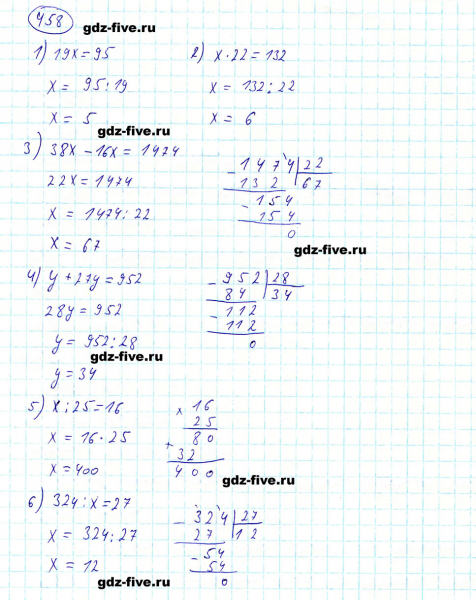 458
gdz-five.ru
1) 19x=95
2) x·22=132
x= 95:19
x= 132:22
x= 5
x= 6
gdz-five.ru
3) 38x-16x= 1474
22x=1474
x= 1474:22
x= 67
- 1474 22
132 67
- 154
154
0
gdz-five.ru
4) y+27y=952
28y=952
y= 952:28
gdz-five.ru
y= 34
- 952 28
84 34
- 112
112
0
5) x:25=16
x= 16·25
x=400
x 16
25
80
+
32
400
gdz-five.ru
6) 324:x=27
x= 324:27
x= 12
- 324 27
27 12
- 54
54
0
gdz-five.ru